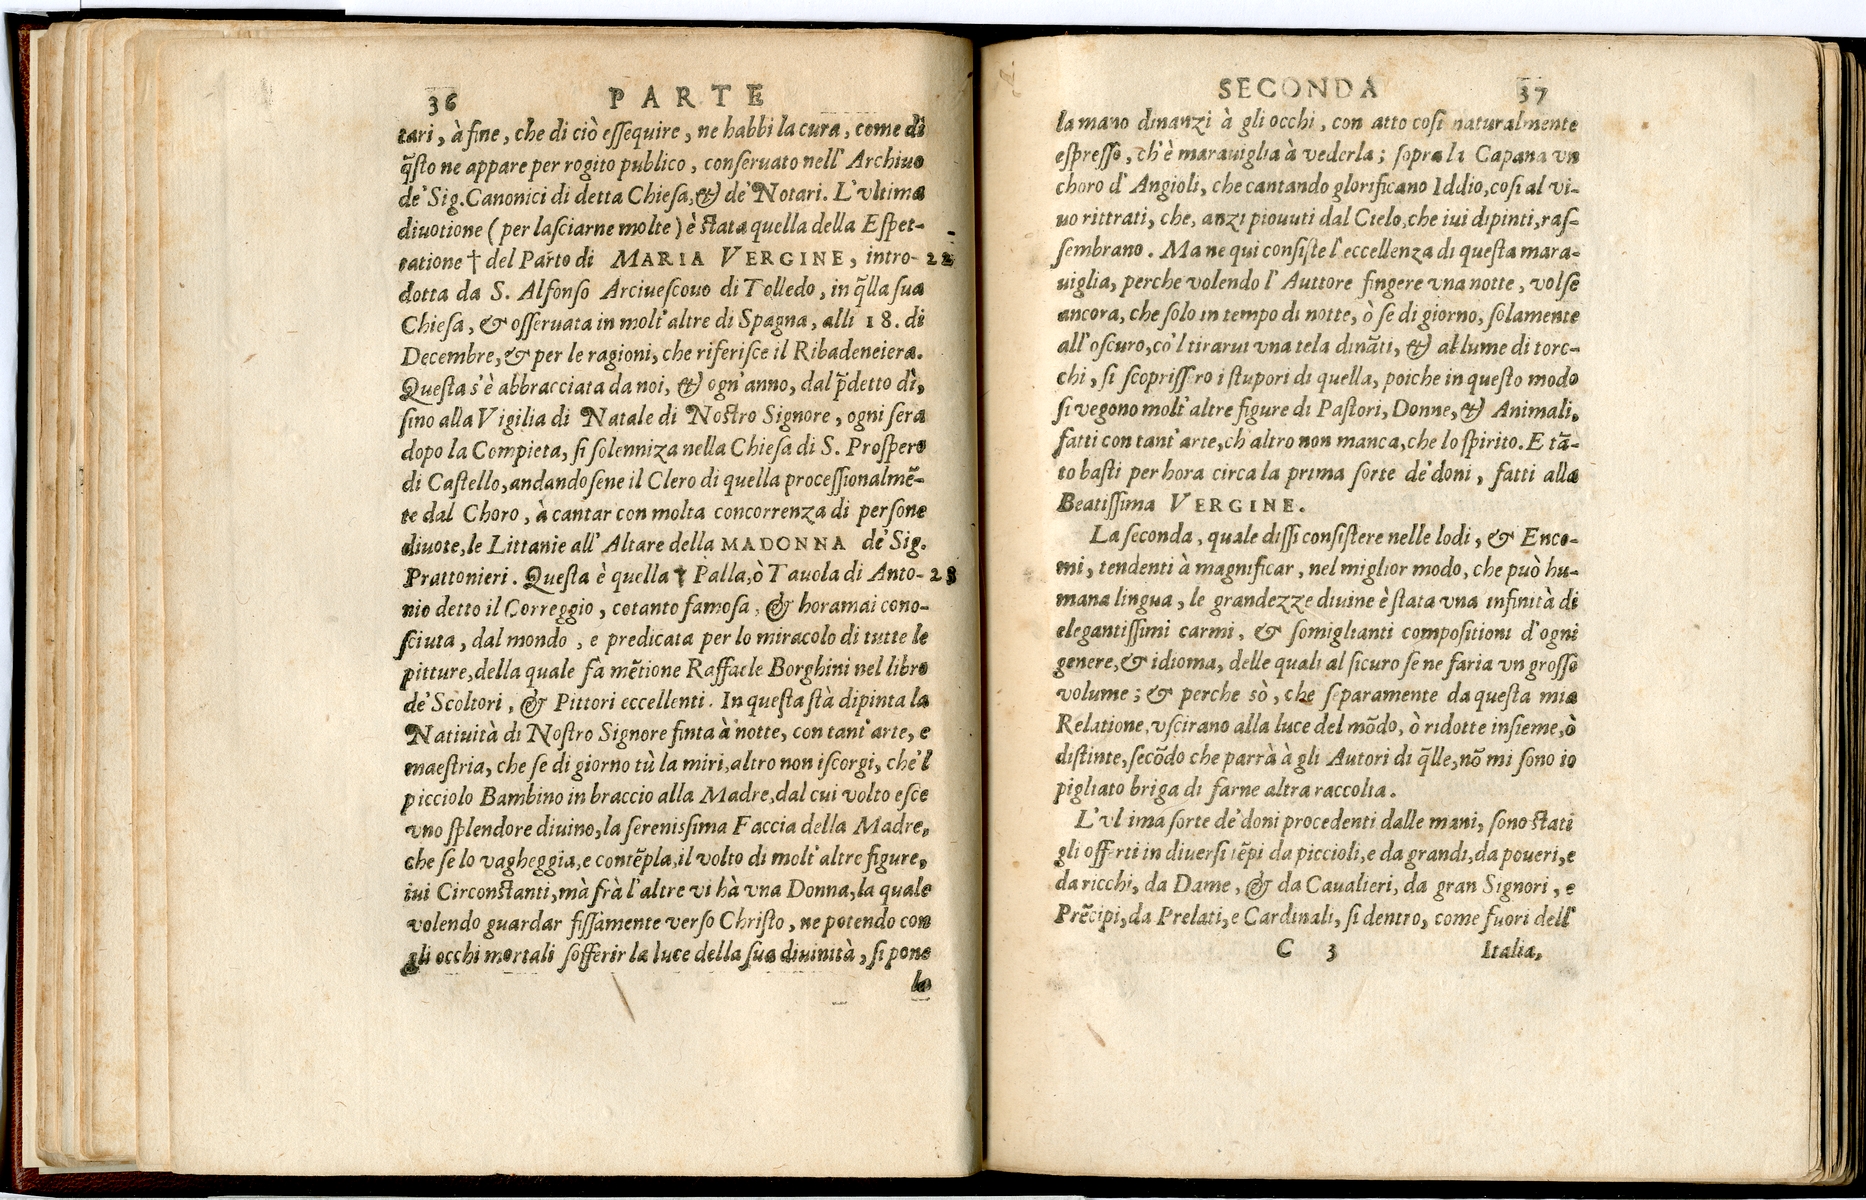 36 PARTE
tari, à fine, che di ciò eſſequire, ne habbi la cura, come di
q̃ſto ne appare per rogito publico, conſeruato nell' Archiuo
de' Sig. Canonici di detta Chieſa, & de' Notari. L'vltima
diuotione (per laſciarne molte) è ſtata quella della Eſpet-
tatione † del Parto di MARIA VERGINE, intro- 22
dotta da S. Alfonſo Arciueſcouo di Tolledo, in q̃lla ſua
Chieſa, & oſſeruata in molt' altre di Spagna, alli 18. di
Decembre, & per le ragioni, che riferiſce il Ribadeneiera.
Queſta s'è abbracciata da noi, & ogn' anno, dal p̃detto dì,
ſino alla Vigilia di Natale di Noſtro Signore, ogni ſera
dopo la Compieta, ſi ſolenniza nella Chieſa di S. Proſpero
di Caſtello, andandoſene il Clero di quella proceſſionalmẽ-
te dal Choro, à cantar con molta concorrenza di perſone
diuote, le Littanie all' Altare della MADONNA de' Sig.
Prattonieri. Queſta è quella † Palla, ò Tauola di Anto- 23
nio detto il Correggio, cotanto famoſa, & horamai cono-
ſciuta, dal mondo, e predicata per lo miracolo di tutte le
pitture, della quale fà mẽtione Raffaele Borghini nel libro
de' Scoltori, & Pittori eccellenti. In queſta ſtà dipinta la
Natiuità di Noſtro Signore finta à notte, con tant' arte, e
maeſtria, che ſe di giorno tù la miri, altro non iſcorgi, che'l
picciolo Bambino in braccio alla Madre, dal cui volto eſce
vno ſplendore diuino, la ſereniſſima Faccia della Madre,
che ſe lo vagheggia, e contẽpla, il volto di molt' altre figure,
iui Circonſtanti, mà frà l'altre vi hà vna Donna, la quale
volendo guardar fiſſamente verſo Chriſto, ne potendo con
gli occhi mortali ſofferir la luce della ſua diuinità, ſi pone
la
SECONDA 37
la mano dinanzi à gli occhi, con atto coſi naturalmente
eſpreſſo, ch'è marauiglia à vederla; ſopra la Capana vn
choro d' Angioli, che cantando glorificano Iddio, coſi al vi-
uo rittrati, che, anzi piouuti dal Cielo, che iui dipinti, raſ-
ſembrano. Ma ne qui conſiſte l'eccellenza di queſta mara-
uiglia, perche volendo l' Auttore fingere vna notte, volſe
ancora, che ſolo in tempo di notte, ò ſe di giorno, ſolamente
all' oſcuro, co'l tirarui vna tela dinãti, & al lume di torc-
chi, ſi ſcopriſſero i ſtupori di quella, poiche in queſto modo
ſi vegono molt' altre figure di Paſtori, Donne, & Animali,
fatti con tant' arte, ch'altro non manca, che lo ſpirito. E tã-
to baſti per hora circa la prima ſorte de' doni, fatti alla
Beatiſſima VERGINE.
La ſeconda, quale diſſi conſiſtere nelle lodi, & Enco-
mi, tendenti à magnificar, nel miglior modo, che può hu-
mana lingua, le grandezze diuine è ſtata vna infinità di
elegantiſſimi carmi, & ſomiglianti compoſitioni d'ogni
genere, & idioma, delle quali al ſicuro ſe ne faria vn groſſo
volume; & perche sò, che ſeparamente da queſta mia
Relatione, vſcirano alla luce del mõdo, ò ridotte inſieme, ò
diſtinte, ſecõdo che parrà à gli Autori di q̃lle, nõ mi ſono io
pigliato briga di farne altra raccolta.
L'vl ima ſorte de' doni procedenti dalle mani, ſono ſtati
gli offerti in diuerſi tẽpi da piccioli, e da grandi, da poueri, e
da ricchi, da Dame, & da Caualieri, da gran Signori, e
Prẽcipi, da Prelati, e Cardinali, ſi dentro, come fuori dell'
C 3 Italia,